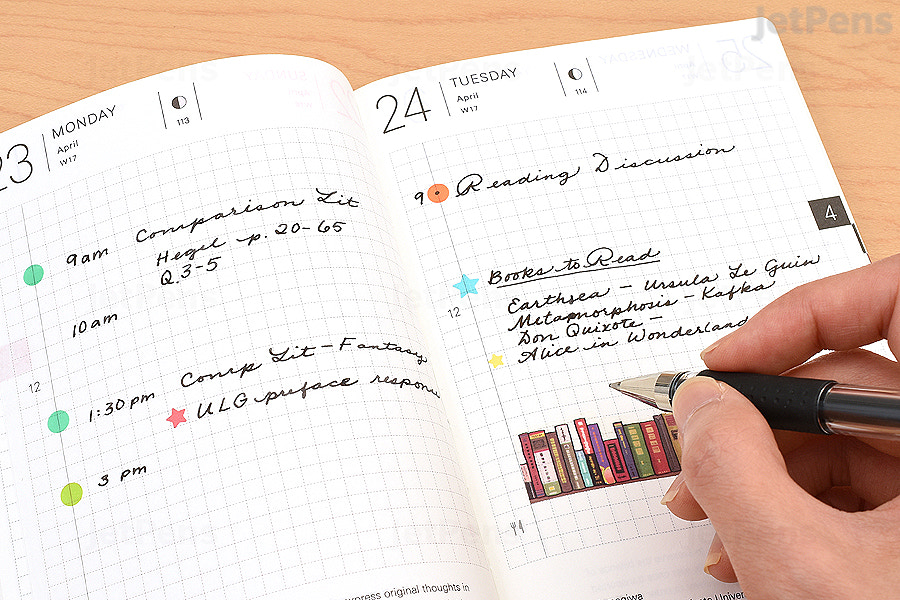 JetPens
23
MONDAY
April
W17
113
9am Comparison Lit
Hegel - p. 20-65
Q.3-5
10am
12
1:30pm Comp Lit - Fantasy
ULG preface response
3 pm
xpress original thoughts in
24
TUESDAY
April
W17
114
WEDNESDAY
25
SUNDAY
4
9 Reading Discussion
Books to Read
12
Earthsea - Ursula Le Guin
Metamorphosis - Kafka
Don Quixote -
Alice in Wonderland